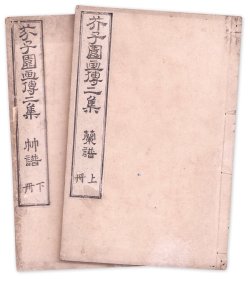 芥子園画傳二集
蘭譜
上冊
芥子園画傳二集
竹譜
下冊